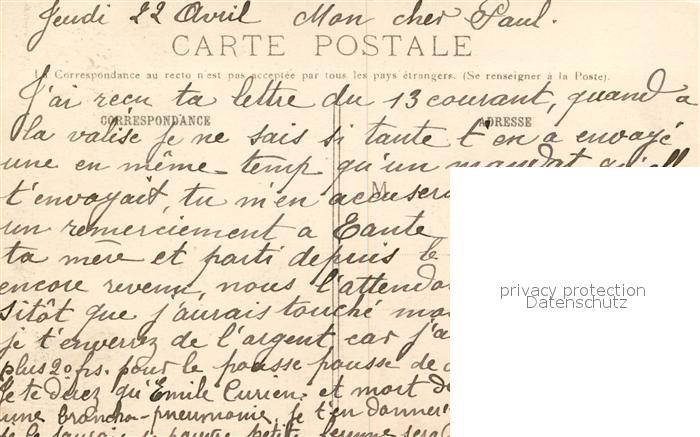 Jeudi 22 Avril Mon cher Paul.
CARTE POSTALE
La Correspondance au recto n'est pas acceptée par tous les pays étrangers. (Se renseigner à la Poste).
J'ai recu ta lettre du 13 courant, quand a
CORRESPONDANCE
ADRESSE
la valise je ne sais si tante t'en a envoyé
une en même temp qu'un mandat qu'ell
M
t'envoyait, tu m'en accusera
un remerciement a Tante
ta mère et parti depuis le
encore revenu, nous l'attendo
sitôt que j'aurais touché mo
je t'enverrez de l'argent car j'a
plus 20 frs. pour le pousse pousse de
Je te direz qu'Emile Curien et mort d
une broncho-pneumonie, je t'en donner
pauvre petite femme sera
privacy protection
Datenschutz